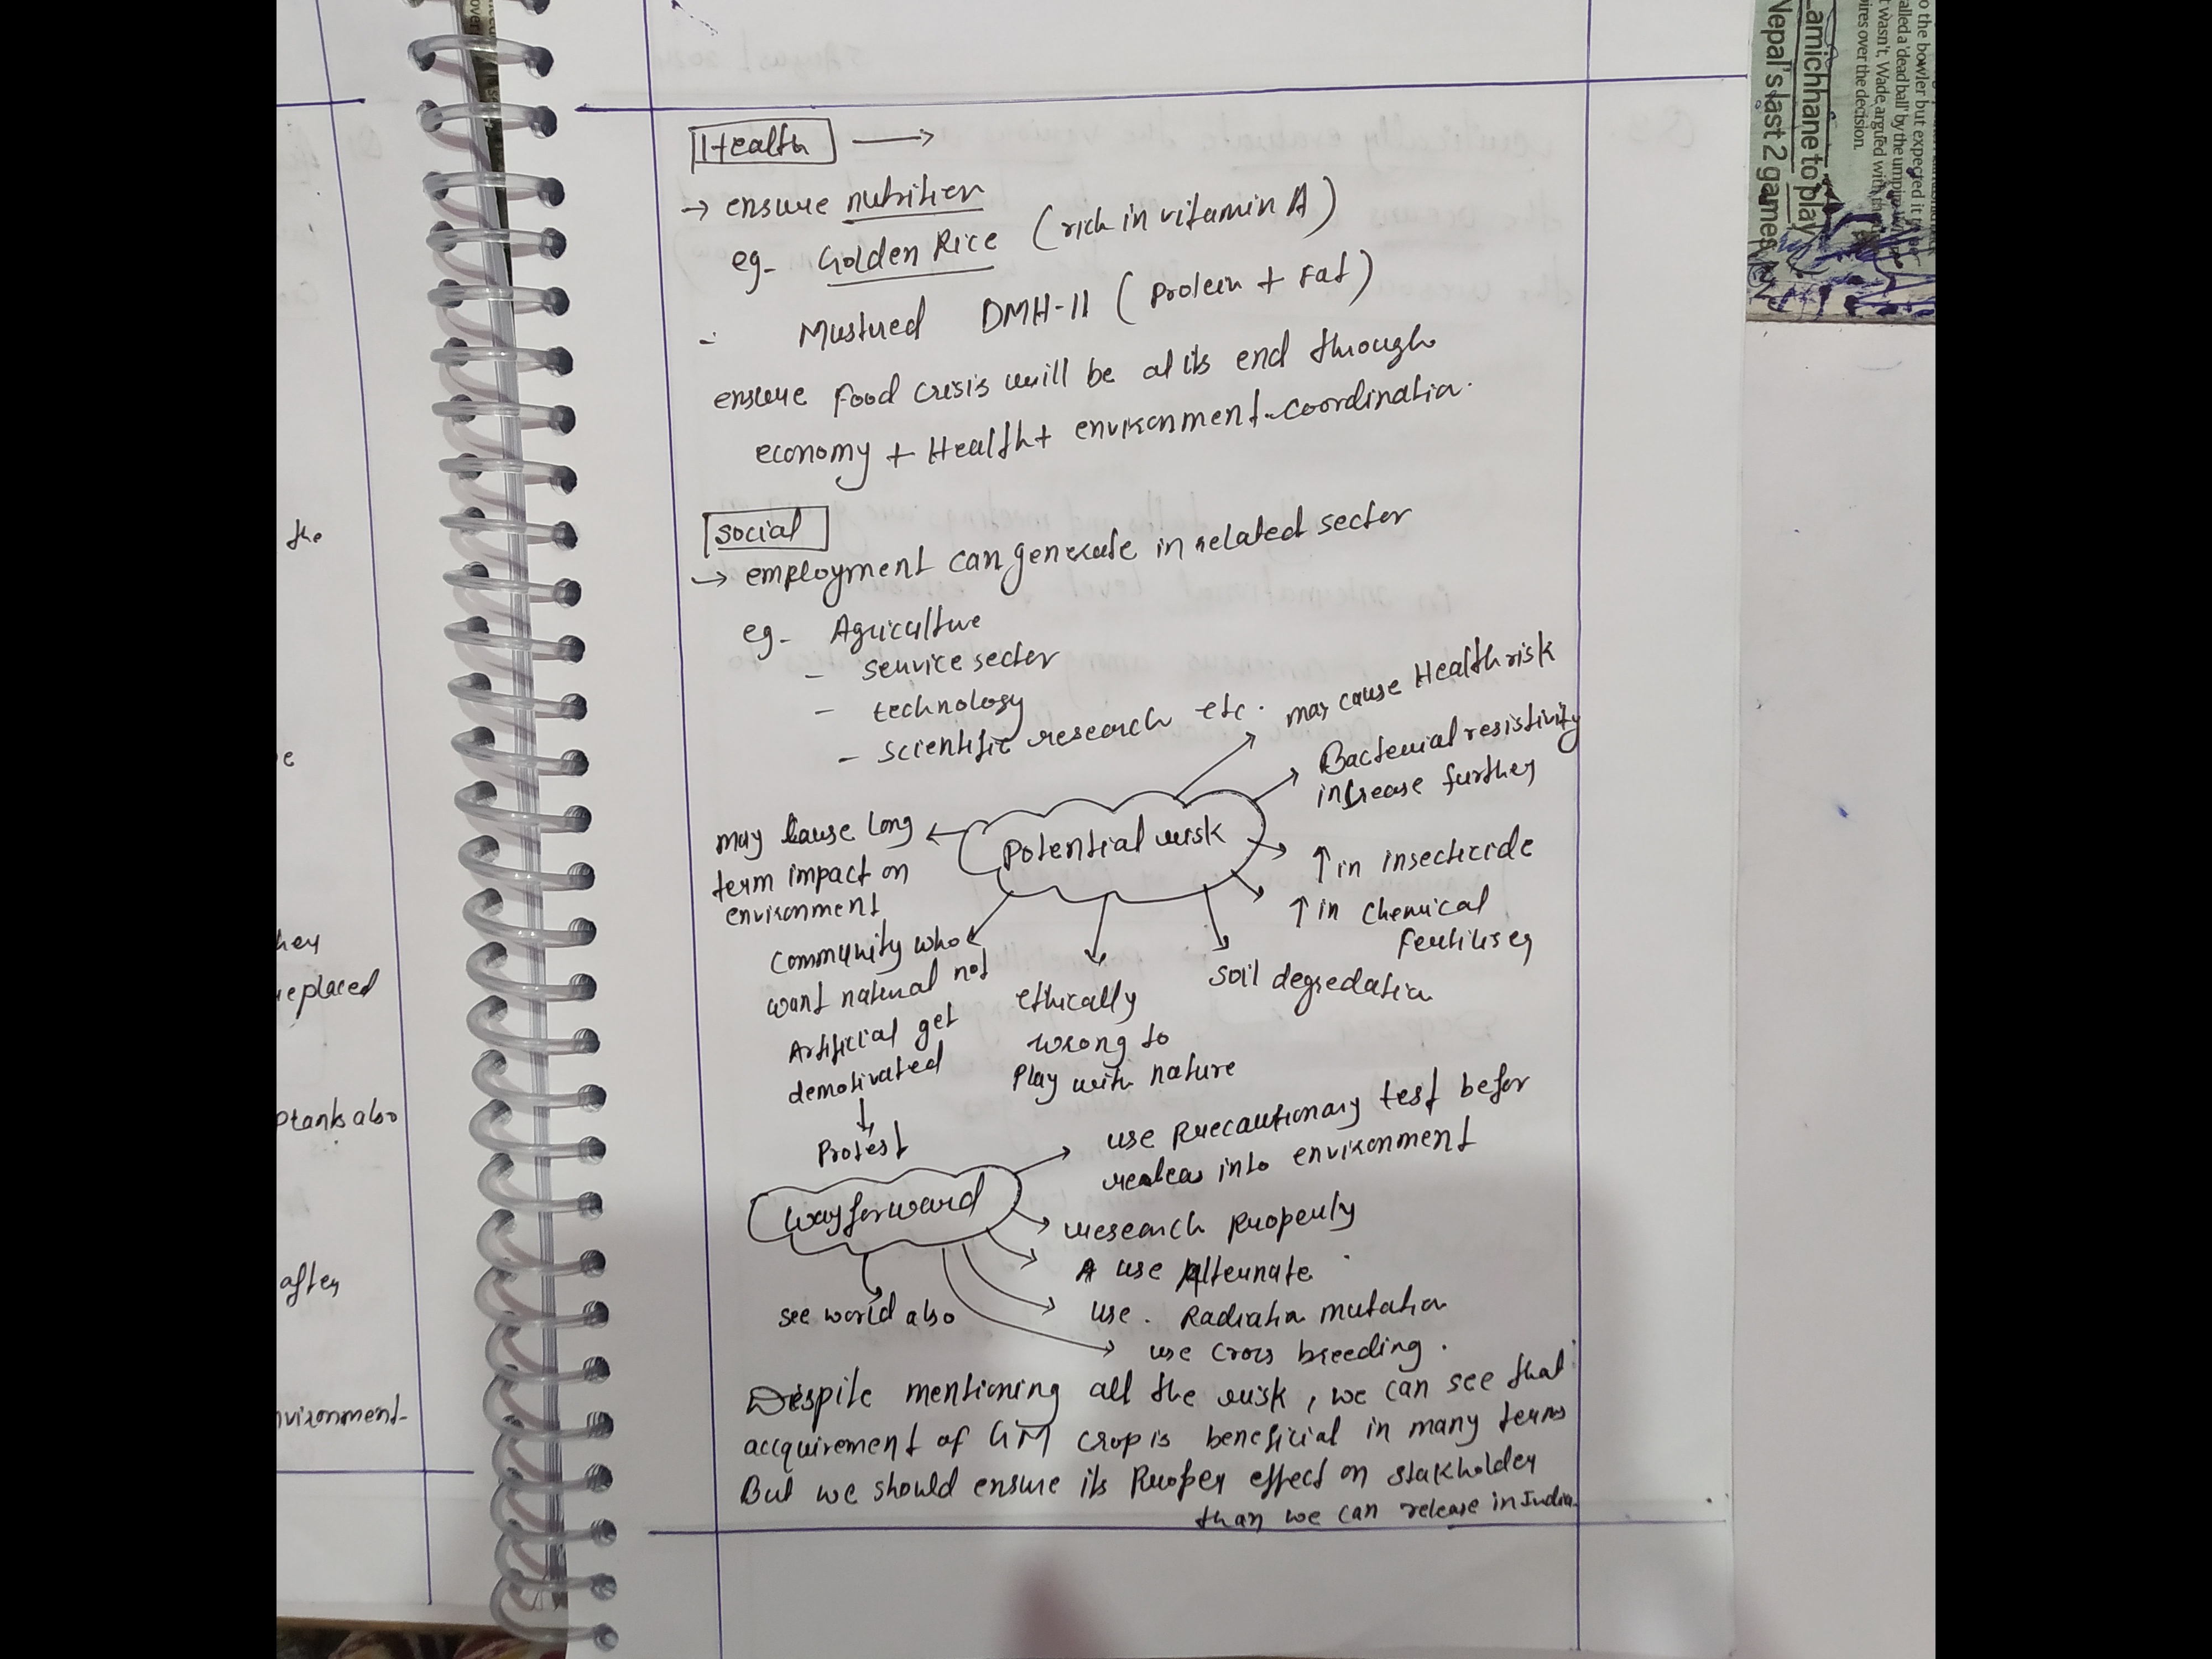 Health →
→ ensure nutrition
eg- Golden Rice (rich in vitamin A)
- Mustured DMH-11 (Protein + Fat)
ensure Food crisis will be at its end through
economy + Health + environment-coordination.
social
→ employment can generate in related sector
eg- Agriculture
- service sector
- technology
- scientific research etc.
may cause Health risk
Bacterial resistivity
increase further
Potential risk
↑ in insecticide
↑ in chemical
fertiliser
soil degredation
ethically
wrong to
Play with nature
may cause long
term impact on
environment
community who
want natural not
Artificial get
demotivated
↓
Protest
way forward
use Precautionary test befor
into environment
research properly
use Alternate
use. Radiation mutation
use cross breeding.
see world also
Despite mentioning all the risk, we can see that
accquirement of GM crop is beneficial in many terms
But we should ensure its Proper effect on stakholder
than we can release in India.
the
e
hey
replaced
Ptanks also
after
nvironment-
o the bowler but expected it to be
alled a 'dead ball' by the umpire
t wasn't. Wade argued with the
ires over the decision.
Lamichhane to play
Nepal's last 2 games